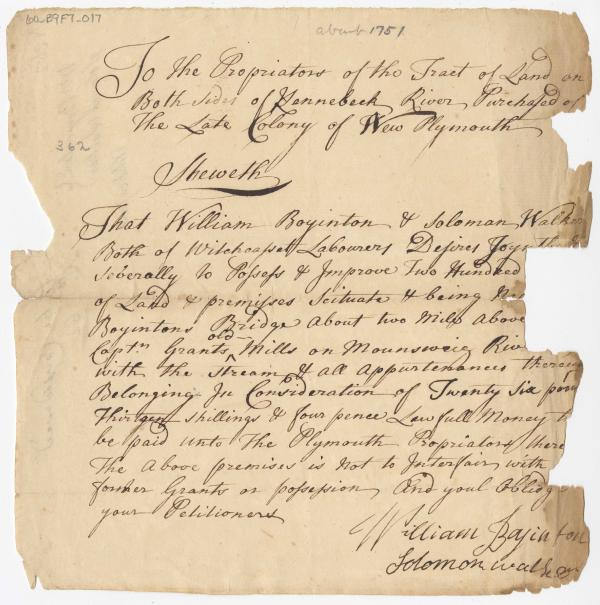 60-B9F7-017
about 1751
To the Propriators of the Tract of Land on
Both sides of Kennebeck River Purchased of
The Late Colony of New Plymouth
362
Sheweth
That William Boyinton & Soloman Walker
Both of Witchcasset Labourers Desires Joyntly &
Severally to Posess & Improve Two Hundred
of Land & premisses Scituate & being Near
Boyintons Bridge About two Mile Above
Captn Grants old Mills on Mounsweig Riv
with the Stream & all Appurtenances thereunto
Belonging In Consideration of Twenty Six poun
Thirteen shillings & four pence Lawfull Money to
be paid unto The Plymouth Propriators
The Above premises is not to Interfair with
former Grants or possession And youl Oblidge
your Petitioners
William Boyinton
Solomon walker